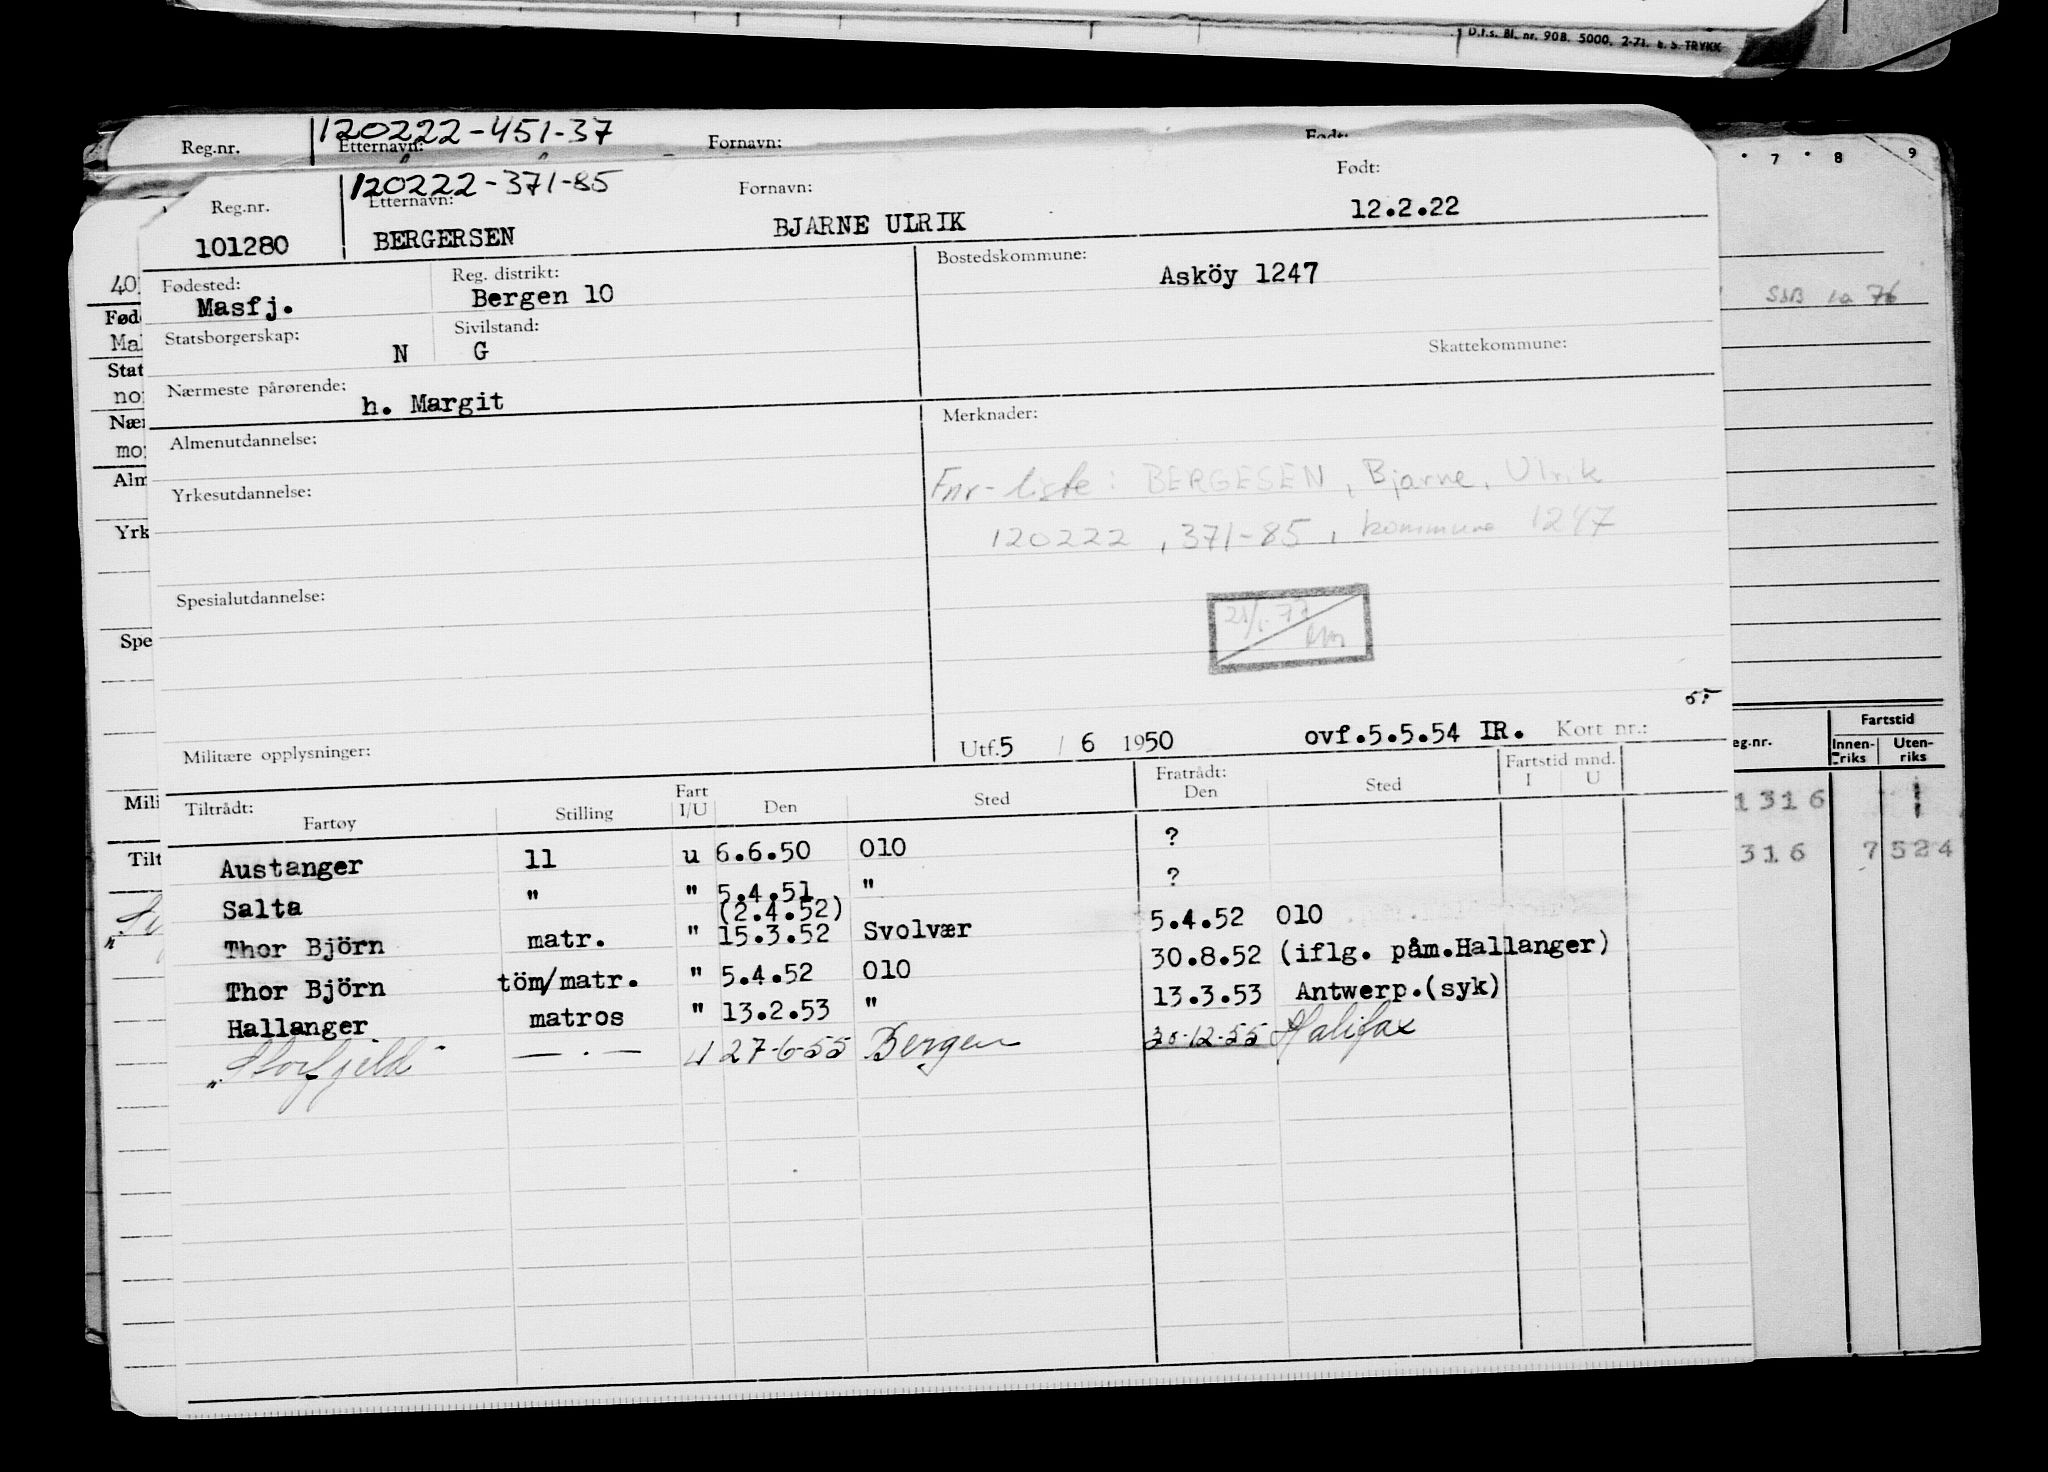 D.f.s. Bl. nr. 908. 5000. 2-71. E. S. TRYKK
Reg.nr. 120222-451-37 Etternavn: Fornavn: Født:
7 8 9
Reg.nr. 120222-371-85 Etternavn: Fornavn: Født:
101280 BERGERSEN BJARNE ULRIK 12.2.22
Fødested: Reg. distrikt: Bostedskommune:
Masfj. Bergen 10 Asköy 1247
Statsborgerskap: Sivilstand: Skattekommune:
N G
Nærmeste pårørende: h. Margit
Almenutdannelse: Merknader:
Yrkesutdannelse: Fnr-liste: BERGESEN, Bjarne, Ulrik
120222, 371-85, kommune 1247
Spesialutdannelse:
Militære opplysninger: Utf.5 / 6 1950 ovf.5.5.54 IR. Kort nr.:
Tiltrådt: Fratrådt: Fartstid mnd.
Fartøy Stilling Fart I/U Den Sted Den Sted I U
Austanger 11 u 6.6.50 010 ?
Salta " " 5.4.51 " ?
(2.4.52)
Thor Björn matr. " 15.3.52 Svolvær 5.4.52 010
Thor Björn töm/matr. " 5.4.52 010 30.8.52 (iflg. påm.Hallanger)
Hallanger matros " 13.2.53 " 13.3.53 Antwerp.(syk)
"Storfjeld" — . — U 27-6-55 Bergen 30-12-55 Halifax
SSB 1a 76
eg.nr. Fartstid
Innen-riks Uten-riks
1316 1
316 7 524
40
Fød
Ma
Stat
no
Nær
mo
Alm
Yrk
Spe
Mili
Tilt